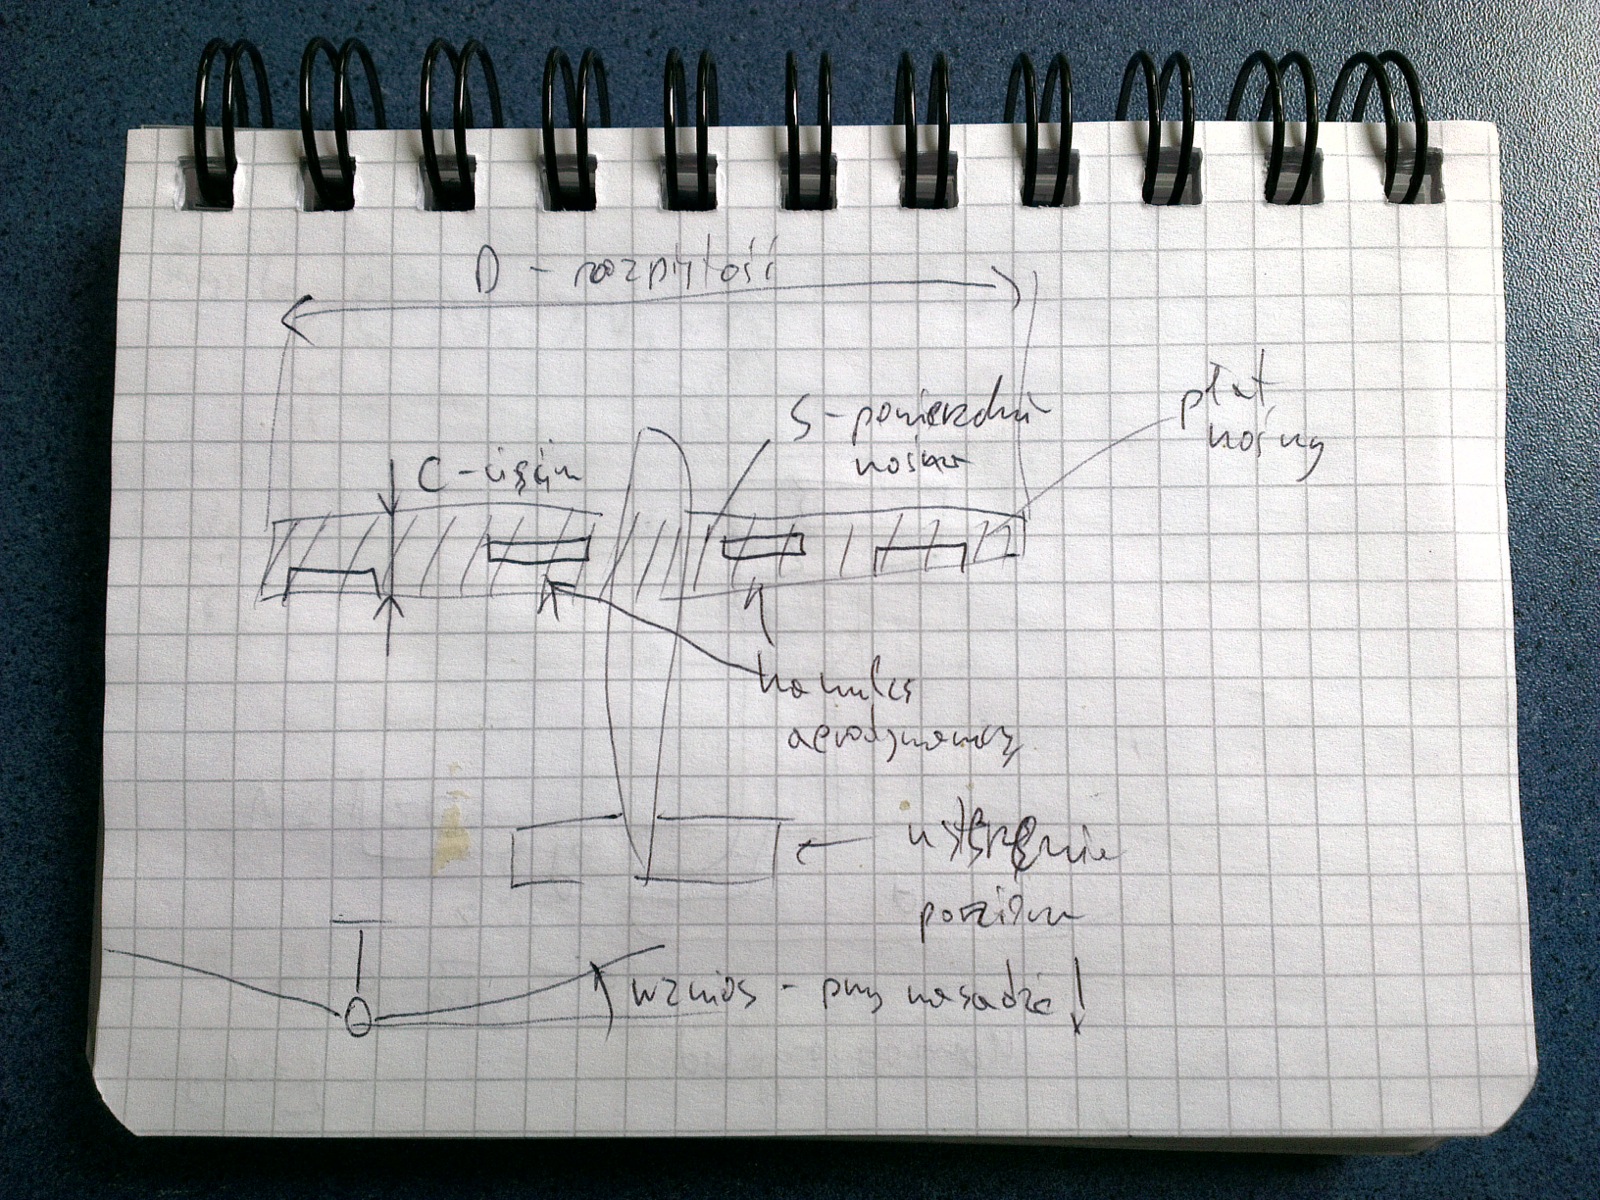 D - rozpiętość
płat
nośny
S - powierzchnia
nośna
C - cięciwa
hamulce
aerodynamiczny
usterzenie
poziome
wznios - przy nasadzie